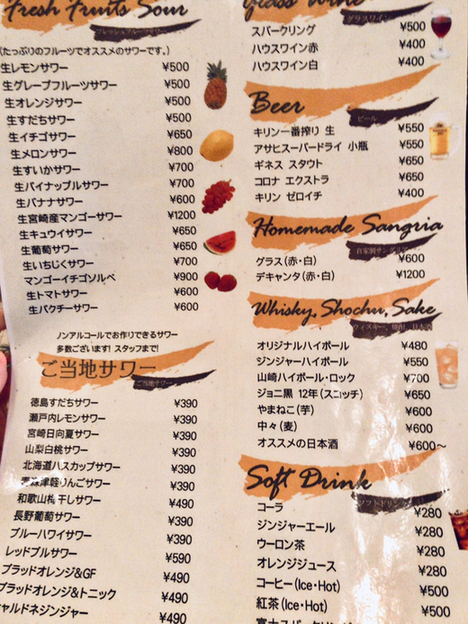 Fresh Fruits Sour
フレッシュフルーツサワー
(たっぷりのフルーツでオススメのサワーです。)
生レモンサワー ¥500
生グレープフルーツサワー ¥500
生オレンジサワー ¥500
生すだちサワー ¥500
生イチゴサワー ¥650
生メロンサワー ¥800
生すいかサワー ¥700
生パイナップルサワー ¥700
生バナナサワー ¥600
生宮崎産マンゴーサワー ¥1200
生キュウイサワー ¥650
生葡萄サワー ¥650
生いちじくサワー ¥700
マンゴーイチゴソルベ ¥900
生トマトサワー ¥600
生パクチーサワー ¥600
ノンアルコールでお作りできるサワー
多数ございます! スタッフまで!
ご当地サワー
ご当地サワー
徳島すだちサワー ¥390
瀬戸内レモンサワー ¥390
宮崎日向夏サワー ¥390
山梨白桃サワー ¥390
北海道ハスカップサワー ¥390
津軽りんごサワー ¥390
和歌山梅干しサワー ¥490
長野葡萄サワー ¥390
ブルーハワイサワー ¥390
レッドブルサワー ¥590
ブラッドオレンジ&GF ¥490
ブラッドオレンジ&トニック ¥490
シャルドネジンジャー ¥490
glass Wine
グラスワイン
スパークリング ¥500
ハウスワイン赤 ¥400
ハウスワイン白 ¥400
Beer
ビール
キリン一番搾り 生 ¥550
アサヒスーパードライ 小瓶 ¥550
ギネス スタウト ¥650
コロナ エクストラ ¥650
キリン ゼロイチ ¥400
Homemade Sangria
自家製サングリア
グラス(赤・白) ¥600
デキャンタ(赤・白) ¥1200
Whisky, Shochu, Sake
ウィスキー、焼酎、日本酒
オリジナルハイボール ¥480
ジンジャーハイボール ¥550
山崎ハイボール・ロック ¥700
ジョニ黒 12年(スコッチ) ¥650
やまねこ(芋) ¥600
中々(麦) ¥600
オススメの日本酒 ¥600～
Soft Drink
ソフトドリンク
コーラ ¥280
ジンジャーエール ¥280
ウーロン茶 ¥280
オレンジジュース ¥280
コーヒー(Ice・Hot) ¥500
紅茶(Ice・Hot) ¥500